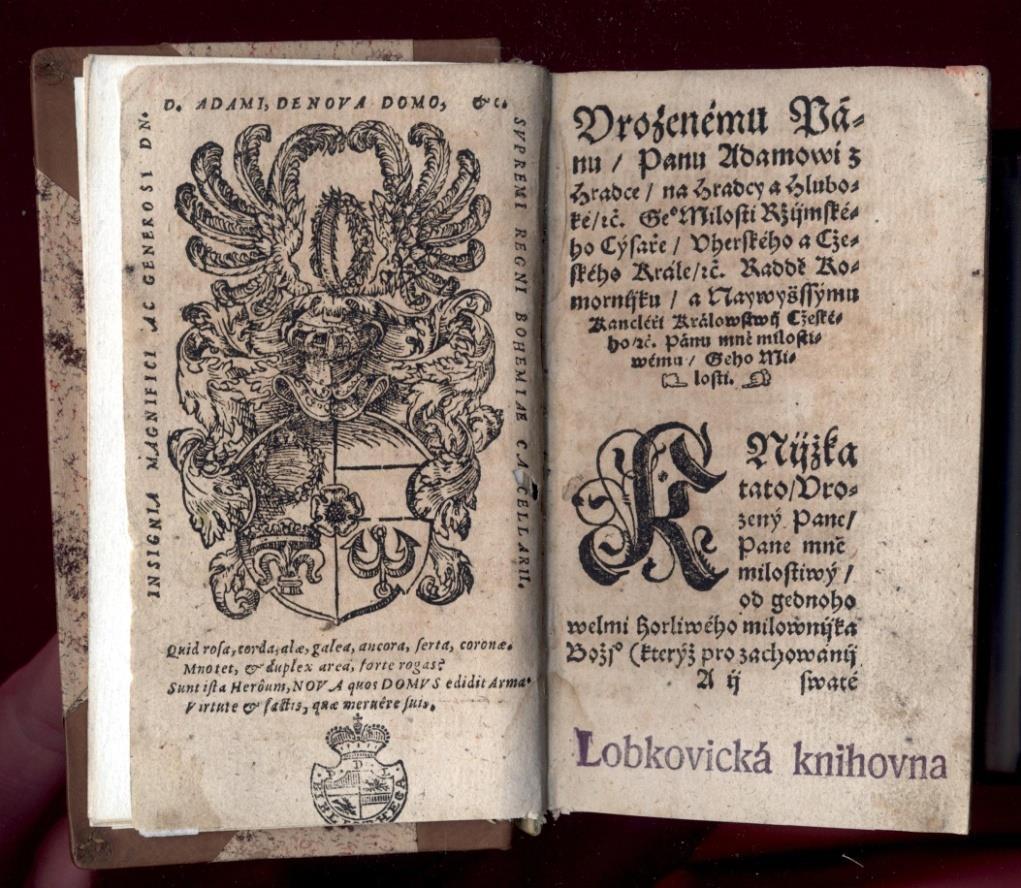 D. ADAMI, DE NOVA DOMO, &c.
SVPREMI REGNI BOHEMIÆ CANCELLARII.
INSIGNIA MAGNIFICI AC GENEROSI DN.
Quid rosa, corda, alæ, galea, ancora, serta, coronæ.
Mnotet, & duplex area, forte rogas?
Sunt ista Herôum, NOVA quos DOMVS edidit Arma.
Virtute & factis, quæ meruêre suis.
BIBLIOTHECA
Vroženému Pá-
nu / Panu Adamowi z
Hradce / na Hradcy a Hlubo-
ké / ꝛč. Geº Milosti Ržijmské-
ho Cýsaře / Vherského a Cže-
ského Krále / ꝛč. Raddě Ko-
mornijku / a Naywyššsýmu
Kancléři Králowstwij Cžeské-
ho / ꝛč. Pánu mně milosti-
wému / Geho Mi-
losti.
KNijžka
tato / Vro-
zený Pane /
Pane mně
milostiwý /
od gednoho
welmi Horliwého milownijka
Božsº (kterýž pro zachowánij
A ij swaté
Lobkovická knihovna